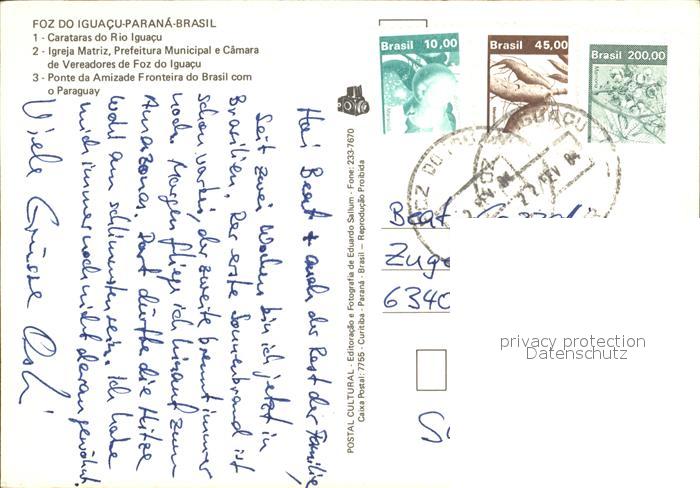 FOZ DO IGUAÇU-PARANÁ-BRASIL
1 - Carataras do Rio Iguaçu
2 - Igreja Matriz, Prefeitura Municipal e Câmara
de Vereadores de Foz do Iguaçu
3 - Ponte da Amizade Fronteira do Brasil com
o Paraguay
Brasil 10,00
Brasil 45,00
Brasil 200,00
FOZ DO IGUAÇU
22 FEV 84
Hoi Beat + auch der Rest der Familie,
Seit zwei Wochen bin ich jetzt in
Brasilien. Der erste Sonnenbrand ist
schon vorbei, der zweite brennt immer
noch. Morgen fliege ich hinauf zum
Amazonas. Dort dürfte die Hitze
wohl am schlimmsten sein. Ich habe
mich immer noch nicht daran gewöhnt.
Viele Grüsse
POSTAL CULTURAL - Editoração e Fotografia de Eduardo Sallum - Fone: 233-7670
Caixa Postal: 7755 - Curitiba - Paraná - Brasil - Reprodução Proibida
Beat
Zuge
6340
privacy protection
Datenschutz